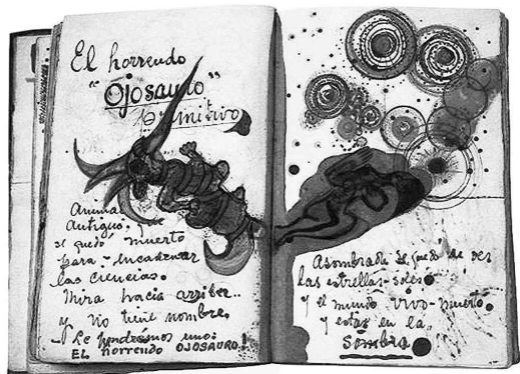 El horrendo
"Ojosauro"
Primitivo
Animal
Antiguo, que
se quedo muerto
para encadenar
las ciencias.
Mira hacia arriba..
y no tiene nombre.
Le pondremos uno:
EL horrendo OJOSAURO!
Asombrada se quedó de ver
las estrellas-soles
y el mundo vivo-muerto
y estar en la
Sombra